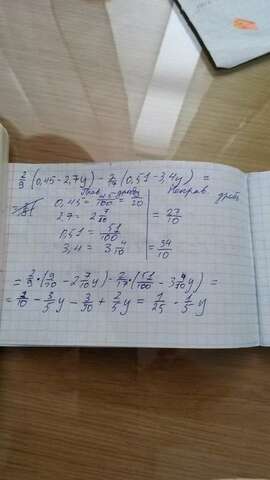 2/9 (0,45 - 2,7y) - 2/17 (0,51 - 3,4y) =
Прав. дробь Неправ. дробь
0,45 = 45/100 = 9/20
2,7 = 2 7/10 = 27/10
0,51 = 51/100
3,4 = 3 4/10 = 34/10
= 2/9 · (9/20 - 2 7/10 y) - 2/17 · (51/100 - 3 4/10 y) =
= 1/10 - 3/5 y - 3/50 + 2/5 y = 1/25 - 1/5 y